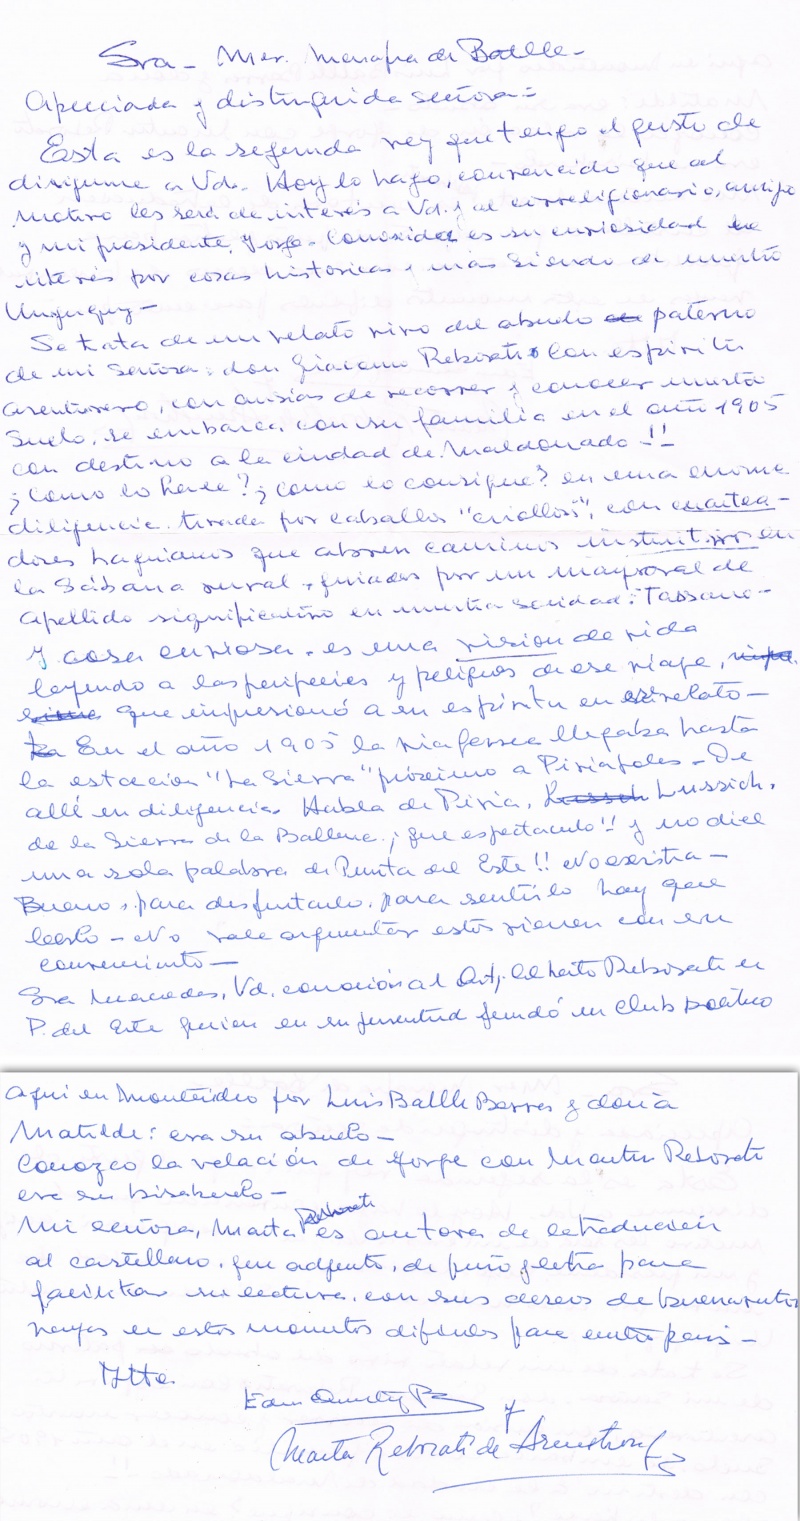 Sra - Mer. Menafra de Batlle -
Apreciada y distinguida señora =
Esta es la segunda vez que tengo el gusto de
dirigirme a Vd. Hoy lo hago, convencido que el
motivo les será de interés a Vd. y al correligionario, amigo
y mi presidente, Jorge. Conocida es su curiosidad
interés por cosas históricas y más siendo de nuestro
Uruguay -
Se trata de un relato vivo del abuelo paterno
de mi Señora: don Giacomo Reborati con espíritu
aventurero, con ansias de recorrer y conocer nuestro
suelo, se embarca con su familia en el año 1905
con destino a la ciudad de Maldonado !!
¿Como lo hace? ¿Como lo consigue? en una enorme
diligencia tirada por caballos "criollos", con cuartea-
dores baquianos que abren caminos en
la Sábana rural, guiados por un mayoral de
apellido significativo en nuestra sociedad: Tassano -
Y cosa curiosa, es una vision de vida
leyendo a las peripecias y peligros de ese viaje,
que impresionó a su espíritu en relato -
En el año 1905 la via ferrea llegaba hasta
la estacion "La Sierra" próximo a Piriapoles - De
allí en diligencia. Habla de Piria, Lussich,
de la Sierra de la Ballena. ¡que espectaculo!! y no dice
una sola palabra de Punta del Este!! No existia -
Bueno, para disfrutarlo, para sentirlo hay que
leerlo - No vale argumentar estos vienen con su
convencimiento -
Sra Mercedes, Vd. conoció al Arq. Reborati en
P. del Este quien en su juventud fundó un Club político
aqui en Montevideo por Luis Batlle Berres y doña
Matilde: era su abuelo -
Conozco la relación de Jorge con Martin Reborati
era su bisabuelo -
Mi señora, Marta Reborati es autora de la traducción
al castellano, que adjunto, de puño y letra para
facilitar su lectura, con sus deseos de buenaventura
en estos momentos dificiles para nuestro pais -
Atte.
y
Marta Reborati de Armstrong